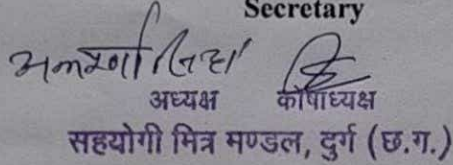 Secretary
अध्यक्ष कोषाध्यक्ष
सहयोगी मित्र मण्डल, दुर्ग (छ.ग.)